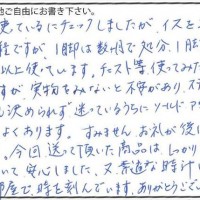 他ご自由にお書き下さい。
使ているにチェックしましたが、イスを
ですが、1脚は数ヶ月で処分、1脚
以上使っています。チェスト等使ってみた
すが、実物をみないと不安があり、ス
決められず迷っているうちにソールドア
よくあります。すみません、お礼が後に
今回、送って頂いた商品は、しっかり
いて安心しました。又、素適な時計
部屋で、時を刻んでいます。ありがとうござい